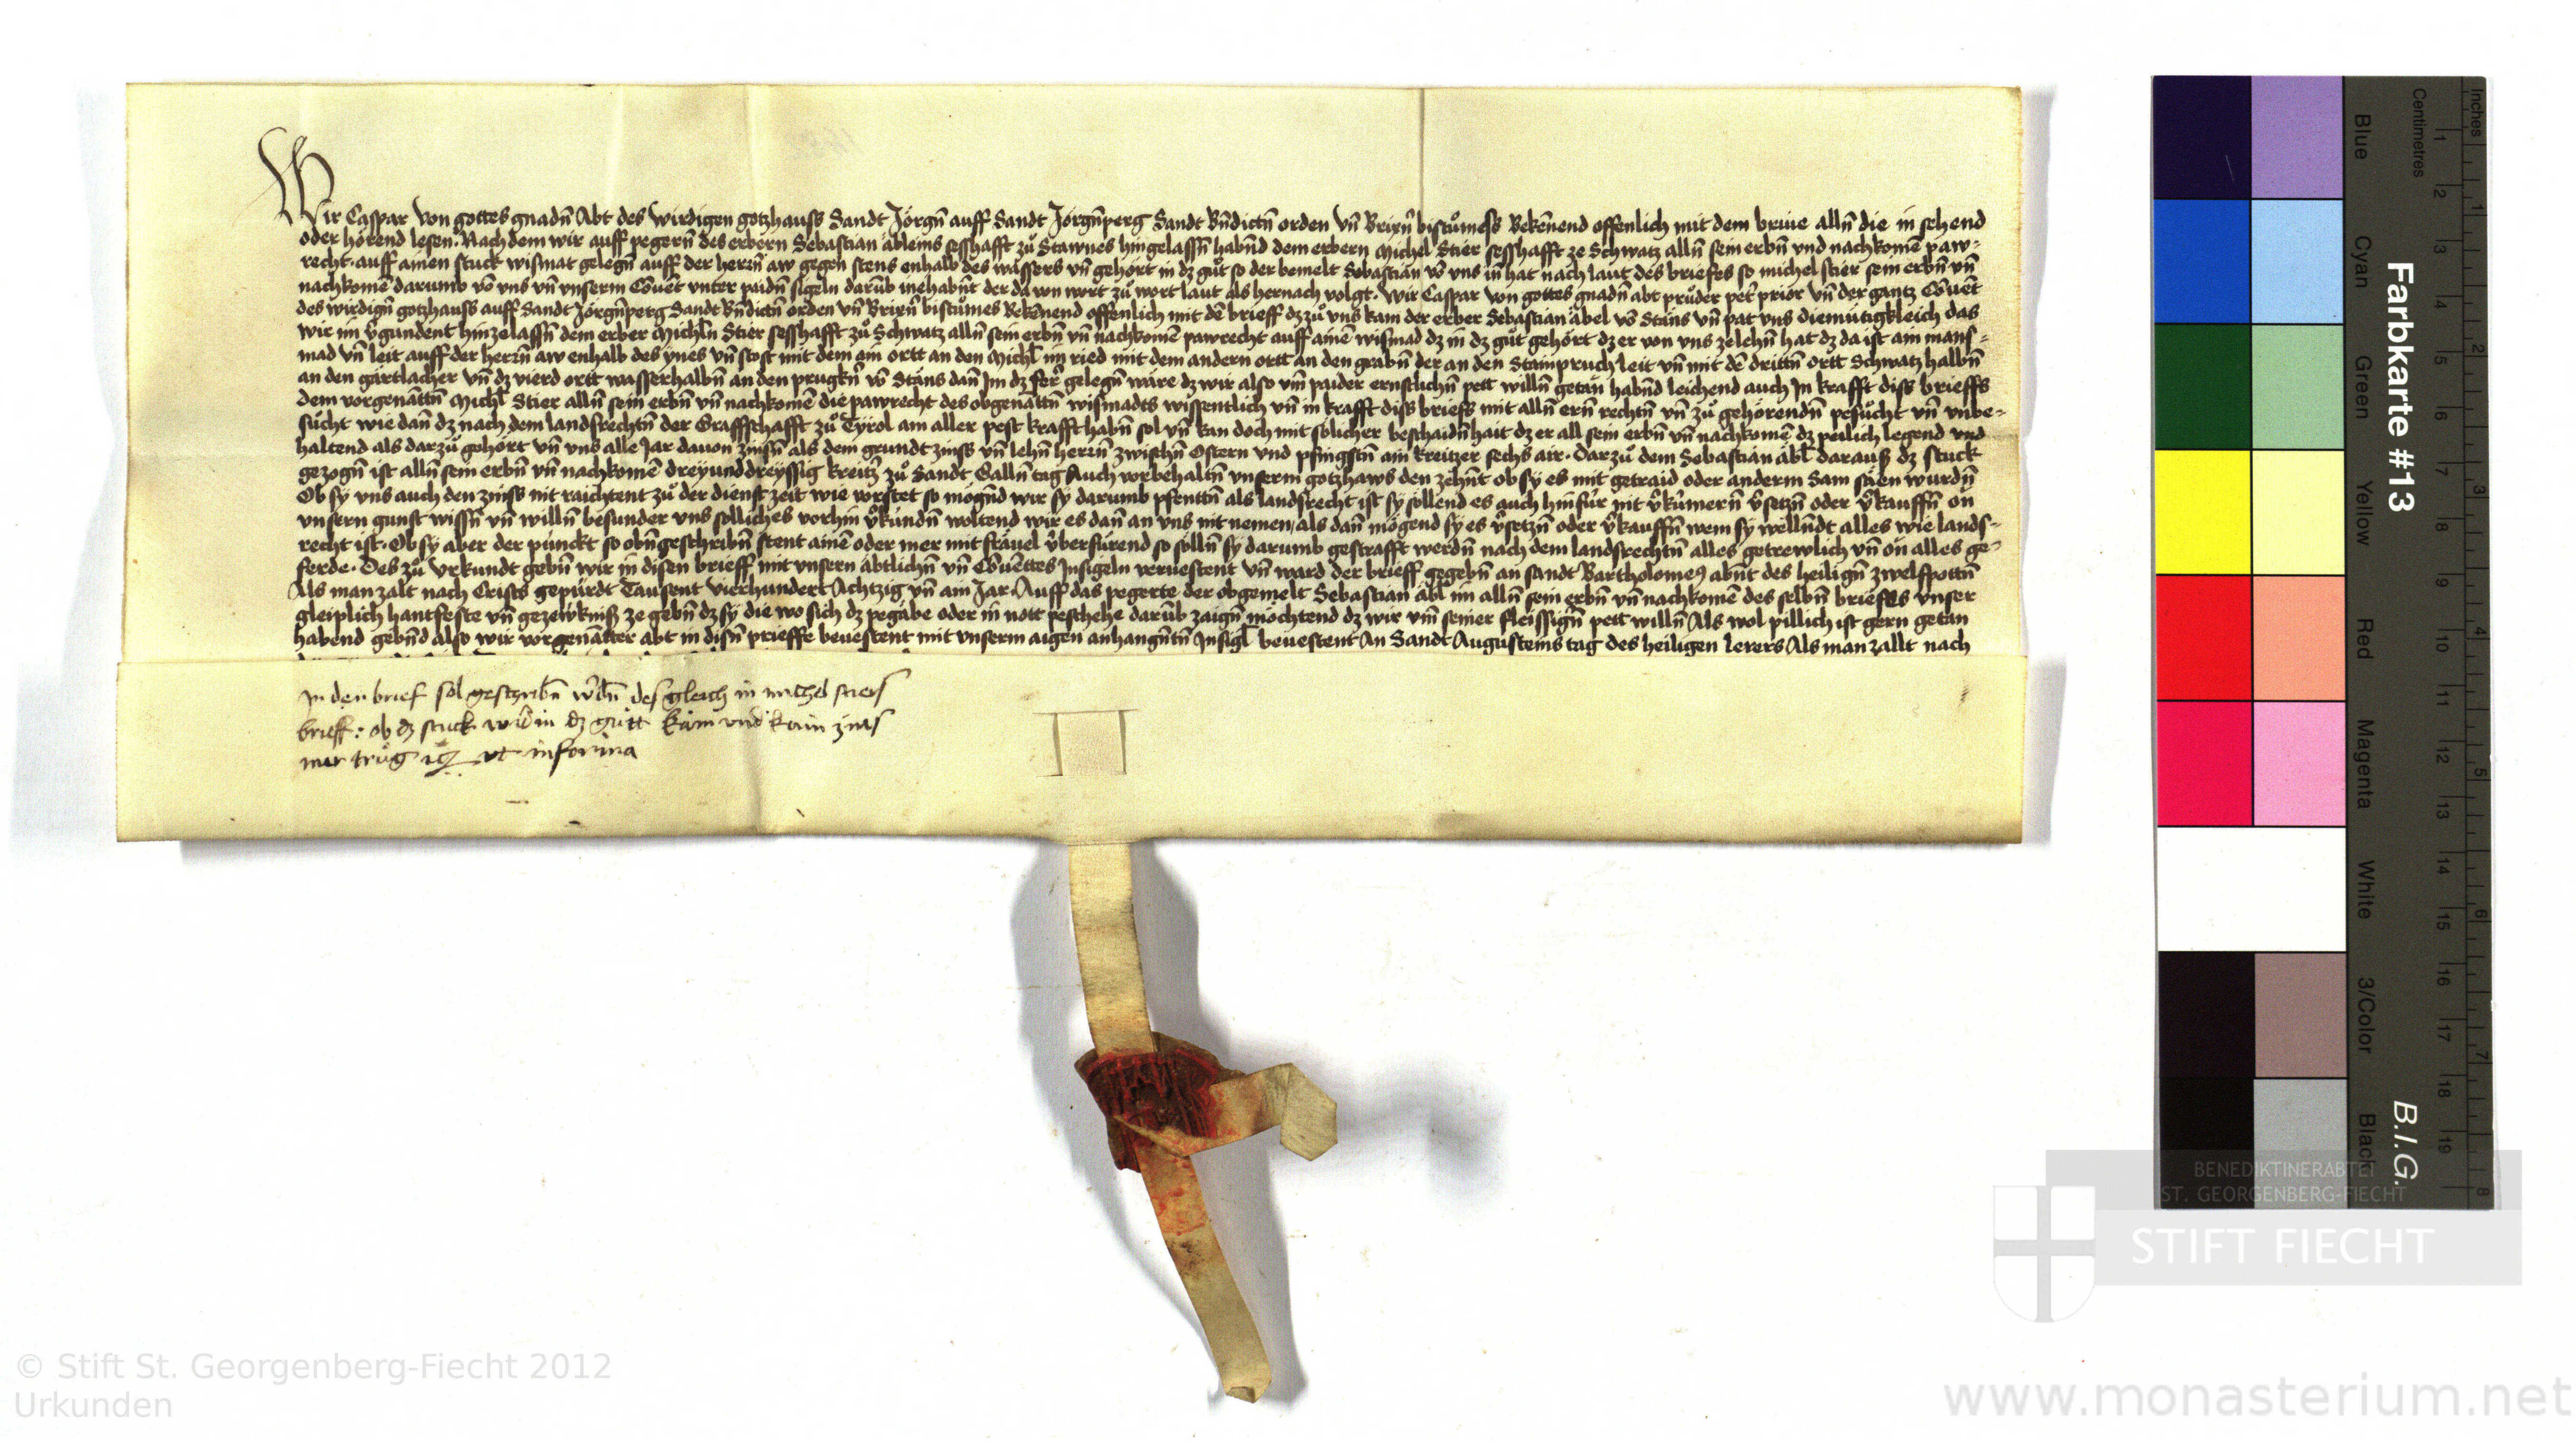 Wir Caspar von gottes gnadn̄ Abt des wirdigen gotzhauss Sandt Jörgn̄ auff Sandt Jörgn̄perg Sandt Bn̄dictn̄ orden vn̄ Brixn̄ bistůmess Bekēnend offenlich mit dem briue alln̄ die in sehend
oder hörend lesen. Nach dem wir auff pegern̄ des erbern Sebastian äbleins sesshafft zů Stawnes hingelassn̄ habn̄d dem erbern Michel Stier sesshafft ze Schwatz alln̄ sein erbn̄ vnd nachkomē paw-
recht auff ainen stuck wismat gelegn̄ auff der herrn̄ aw gegen stens enhalb des wassers vn̄ gehört in dz gůt so der bemelt Sebastian vō vns in̄ hat nach laut des briefes so michel stier sein erbn̄ vn̄
nachkomē darumb vō vns vn̄ vnserm Cōuēt vnter paidn̄ sigeln darūb inehabn̄t der da von wort zů wort laut als hernach volgt. Wir Caspar von gottes gnadn̄ abt průder pet̄ prior vn̄ der gantz Cōuēt
des wirdign̄ gotzhauss auff Sandt Jörgn̄perg Sandt Bn̄dictn̄ orden vn̄ Brixn̄ bistůmes Bekēnend offenlich mit dē brieff dz zů vns kam der erber Sebastian äbel vō Stäns vn̄ pat vns diemütigkleich das
wir im v̄gundent hinzelassn̄ dem erber Michln̄ Stier sesshafft zů Schwatz alln̄ sein erbn̄ vn̄ nachkomē pawrecht auff ainē wismad dz in dz gůt gehört dz er von vns zelehn̄ hat dz da ist ain mans-
mad vn̄ leit auff der herrn̄ aw enhalb des ynes vn̄ stost mit dem ain ortt an den Michl im ried mit dem andern ortt an den grabn̄ der an den Stainpruch leit vn̄ mit dē drittn̄ ortt Schwatz halbn̄
an den gärtlacher vn̄ dz vierd ortt wasserhalbn̄ an den prugkn̄ vō Stäns dan̄ Im dz fer̄ gelegn̄ wäre dz wir also vm̄ paider ernstlichn̄ pett willn̄ getan habn̄d leichend auch In krafft diss brieffs
dem vorgenāttn̄ Michl Stier alln̄ sein erbn̄ vn̄ nachkomē die pawrecht des obgenāttn̄ wismadts wissentlich vn̄ in krafft diss briefs mit alln̄ ern̄ rechtn̄ vn̄ zů gehörendn̄ pesůcht vn̄ vnbe-
sůcht wie dan̄ dz nach dem landsrechtn̄ der Graffschafft zů Tyrol am aller pest krafft habn̄ sol vn̄ kan doch mit solicher beschaidn̄hait dz er all sein erbn̄ vn̄ nachkomē dz peilich legend vnd
haltend als darzů gehört vn̄ vns alle Jar dauon zinsn̄ als dem grundt zinss vn̄ lehn̄ herrn̄ zwischn̄ Ostern vnd pfingstn̄ ain kreitzer sechs air. Darzů dem Sebastian äbl̄ darauss dz stuck
gezogn̄ ist alln̄ sein erbn̄ vn̄ nachkomē dreyunddreyssig kreitz̄ zů Sandt Galln̄ tag Auch vorbehaltn̄ vnserm gotzhaws den zehn̄t ob sy es mit getraid oder anderm Sam säen wurdn̄
Ob sy vns auch den zinss nit raichtent zů der dienst zeit wie vorstet so mögn̄d wir sy darumb pfenttn̄ als landsrecht ist sy sollend es auch hinfür nit v̄kümern̄ v̄setzn̄ oder v̄kauffn̄ on
vnsern gunst wissn̄ vn̄ willn̄ besunder vns solliches vorhin v̄kündn̄ woltend wir es dan̄ an vns nit nemen als dan̄ mögend sy es v̄setzn̄ oder v̄kauffn̄ wem sy welln̄dt alles wie lands-
recht ist. Ob sy aber der punckt so obn̄geschribn̄ stent ainē oder mer mit fräuel v̄berfürend so solln̄ sy darumb gestrafft werdn̄ nach dem landsrechtn̄ alles getrewlich vn̄ on alles ge-
ferde. Des zů vrkundt gebn̄ wir in disen brieff mit vnsern äbtlichn̄ vn̄ Cōuēttes Insigeln veruestent vn̄ ward der brieff gegebn̄ an sandt Bartholomeꝰ abn̄t des heilign̄ zwelfpottn̄
Als man zalt nach Cristꝰ gepürdt Tausent vierhundert Achtzig vn̄ ain Jar. Auff das pegerte der obgemelt Sebastian äbl im alln̄ sein erbn̄ vn̄ nachkomē des selbn̄ brieffes vnser
gleiplich hantfeste vn̄ gezewknis ze gebn̄ dz sy die wo sich dz pegäbe oder in nott peschehe darūb zaign̄ möchtend dz wir vm̄ seiner fleissign̄ pett willn̄ Als wol pillich ist gern getan
habend gebn̄d also wir vorgenātter abt in disn̄ prieffe beuestent mit vnserm aigen anhangn̄tn̄ Insigl beuestent An Sandt Augusteins tag des heiligen lerers Als man zallt nach
In den brief sol geschribn̄ w̄dn̄ desgleich in michel stiers
brieff: ob dz stuck wid̄ in dz gütt käm vnd kain zins
mer trüg ⁊c ut in forma
Farbkarte #13
B.I.G.
Centimetres
Inches
Blue
Cyan
Green
Yellow
Red
Magenta
White
3/Color
Black
1 2 3 4 5 6 7 8 9 10 11 12 13 14 15 16 17 18 19
1 2 3 4 5 6 7 8
BENEDIKTINERABTEI
ST. GEORGENBERG-FIECHT
STIFT FIECHT
© Stift St. Georgenberg-Fiecht 2012
Urkunden
www.monasterium.net